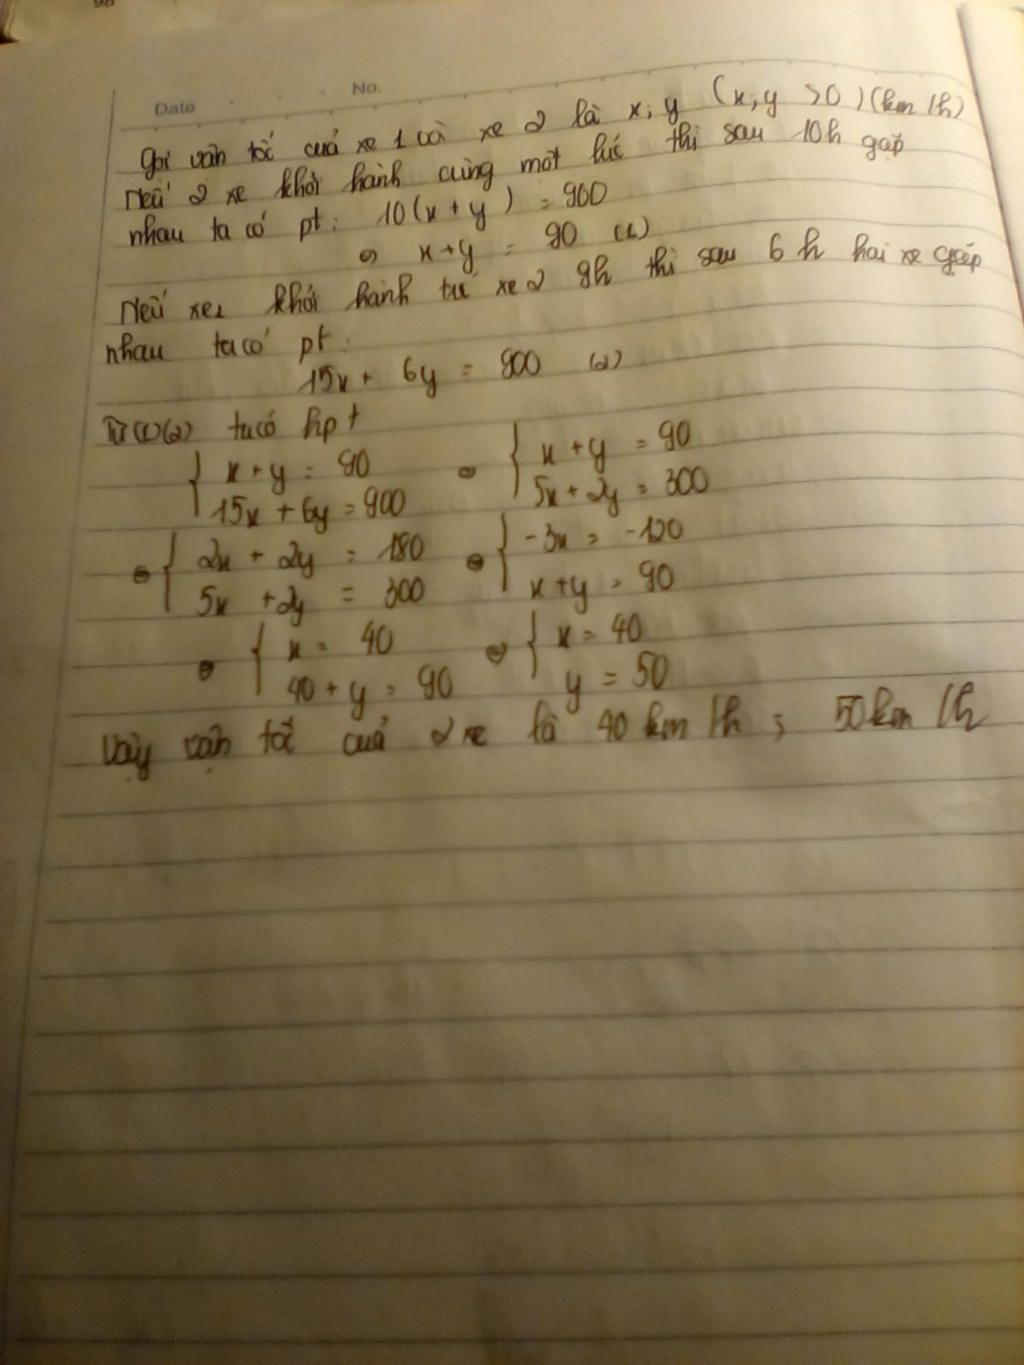 98
Date No.
Gọi vận tốc của xe 1 và xe 2 là x; y (x; y > 0) (km/h)
Nếu 2 xe khởi hành cùng một lúc thì sau 10h gặp
nhau ta có pt: 10(x + y) = 900
⇔ x + y = 90 (1)
Nếu xe 1 khởi hành xe 2 9h thì sau 6h hai xe gặp
nhau ta có pt:
15x + 6y = 900 (2)
Từ (1)(2) ta có hpt
{ x + y = 90 ⇔ { x + y = 90
15x + 6y = 900 5x + 2y = 300
⇔ { 2x + 2y = 180 ⇔ { -3x = -120
5x + 2y = 300 x + y = 90
⇔ { x = 40 ⇔ { x = 40
40 + y = 90 y = 50
Vậy vận tốc của 2 xe là 40 km/h ; 50 km/h